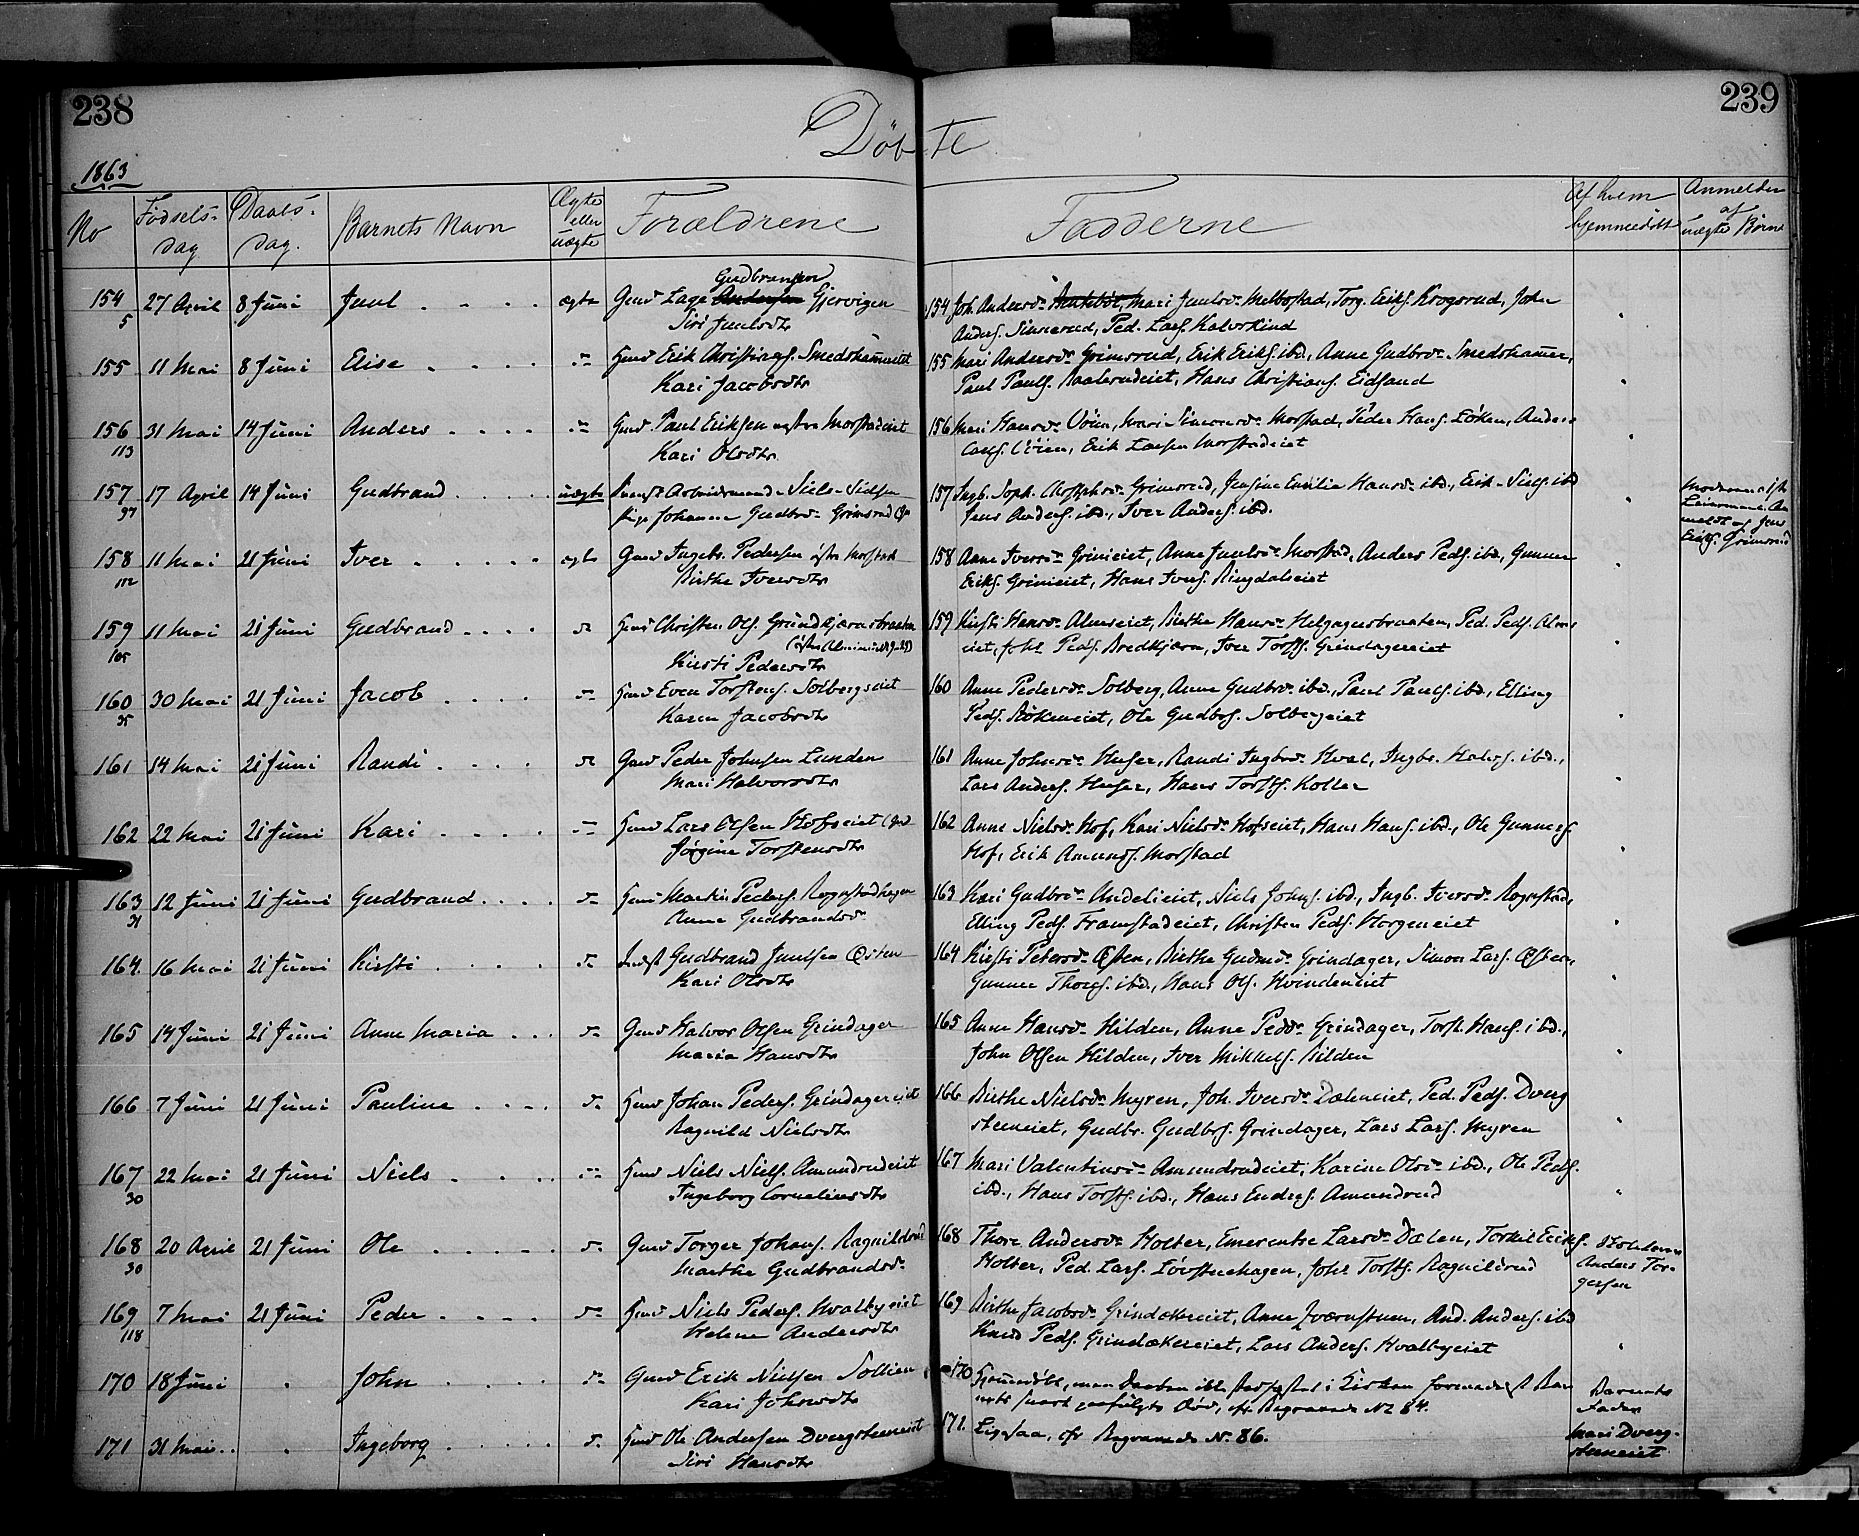 238
239
Døbte
1863
No
Fødsels-
dag
Daabs-
dag.
Barnets Navn
Ægte
eller
uægte
Forældrene
Fadderne
Af hvem
hjemmedøbt
Anmelder
af
uægte Børn
154 27 April 8 Juni Juul ægte Gmd Lage Gudbransen Gjervigen
5
Siri Juulsdtr
154 Joh. Andersdr Mari Juulsdr Melbostad, Torg. Eriks. Krogsrud, John
Anders. Sinnerud, Ped. Lars. Kalvskind
155 11 Mai 8 Juni Elise Hmd Erik Christians. Smedshammereiet
Kari Jacobsdtr
155 Mari Andersdr Grimsrud, Erik Eriks. ibd., Anne Gudbrdr Smedshammer,
Paul Pauls. Raaberudeiet, Hans Christians. Eidsand
156 31 Mai 14 Juni Anders Hmd Paul Eriksen Morstadeiet
113
Kari Olsdtr
156 Mari Hansdr Morstad, Peder Hans. Løken, Anders
Erik Larsen Morstadeiet
157 17 April 14 Juni Gudbrand uægte Arbeidsmand Niels Nielsen
97
Pige Johanne Gudbrdr Grimsrud
157 Ingb. Soph. Grimsrud, Jensine Emilie Hansdr ibd., Erik Niels. ibd
Jens Anders. ibd., Iver Anders. ibd.
Moderens 1ste
Leiermaal An-
meldt af Jens
Eriks. Grimsrud
158 11 Mai 21 Juni Iver ægte Gmd Ingebr. Pedersen østre Morstad
112
Birthe Iversdtr
158 Anne Iversdr Grinieiet, Anne Juulsdr Morstad, Anders Peds. ibd., Gunner
Eriks. Grinieiet, Hans Ivers. Ringdalseiet
159 11 Mai 21 Juni Gudbrand Hmd Christen Ols.
105
Kirsti Pedersdtr
159 Kirsti Hansdr Almseiet, Birthe Hansdr Helgagersbraaten, Ped. Peds. Alms
eiet, Johs Peds. Bredkjærn, Iver Torsts. Grindagereiet
160 30 Mai 21 Juni Jacob Hmd Even Torstens. Solbergseiet
95
Karen Jacobsdtr
160 Anne Pedersdr Solberg, Anne Gudbrdr ibd., Paul Pauls. ibd., Elling
Peds. Røkeneiet, Ole Gudbrs. Solbergeiet
161 14 Mai 21 Juni Randi Gmd Peder Johnsen Lunden
Mari Halvorsdtr
161 Anne Johnsdr Huser, Randi Ingbrdr Hval, Ingbr. Halvs. ibd.,
Lars Anders. Huser, Hans Torsts. Kolter
162 22 Mai 21 Juni Kari Hmd Lars Olsen Hofseiet
Jørgine Torstensdtr
162 Anne Nielsdr Hof, Kari Nielsdr Hofseiet, Hans Hans. ibd., Ole Gunners.
Hof, Erik Amunds. Morstad
163 12 Juni 21 Juni Gudbrand Hmd Martin Peders. Rognstadhagen
31
Anne Gudbrandsdr
163 Kari Gudbrdr Undelieiet, Niels Johns. ibd., Ingb. Iversdr Rognstad,
Elling Peds. Framstadeiet, Christen Peds. Horgeneiet
164 16 Mai 21 Juni Kirsti Gudbrand Juulsen Østen
Kari Olsdtr
164 Kirsti Petersdr Østen, Birthe Gudmdr Grindager, Simon Lars. Østen,
Gunner Thors. ibd., Hans Ols. Hvindeneiet
165 14 Juni 21 Juni Anne Maria Gmd Halvor Olsen Grindager
Maria Hansdtr
165 Anne Hansdr Hilden, Anne Peddr Grindager, Torst. Hans. ibd.,
John Olsen Hilden, Iver Mikkels. Bilden
166 7 Juni 21 Juni Pauline Hmd Johan Peders. Grindagereiet
Ragnild Nielsdtr
166 Birthe Nielsdr Myren, Joh. Iversdr Dæleneiet, Ped. Peds. Dverg
steneiet, Gudbr. Gudbrs. Grindager, Lars Lars. Myren
167 22 Mai 21 Juni Niels Hmd Niels Niels. Amundrudeiet
30
Ingeborg Corneliusdtr
167 Mari Valentinsdr Amundrudeiet, Karine Olsdr ibd., Ole Peds.
ibd., Hans Torsts. ibd., Hans Enders. Amundrud
168 20 April 21 Juni Ole Gmd Torger Johans. Ragnildsrud
30
Marthe Gudbrandsdr
168 Thore Andersdr Holter, Emerentse Larsdr Dælen, Torkil Eriks.
Holter, Ped. Lars. Løvstuehagen, Johs Torsts. Ragnildsrud
Skoleholder
Anders Tor-
gersen
169 7 Mai 21 Juni Peder Hmd Niels Peders. Hvalbyeiet
118
Helene Andersdtr
169 Birthe Jacobsdr Grindakereiet, Anne Kværnstuen, And. Anders. ibd
Knud Peds. Grindakereiet, Lars Anders. Hvalbyeiet
170 18 Juni John Gmd Erik Nielsen Sollien
Kari Johnsdtr
170 Hjemmedøbt, men Daaben ikke stadfæstet i Kirken formedelst Bar
nets snart paafulgte Død, cfr Begravede No 84.
Barnets
Fader
171 31 Mai Ingeborg Hmd Ole Andersen Dvergsteneiet
Siri Hansdtr
171. Ligesaa, cfr Begravede No. 86.
Mari Dverg-
steneiet